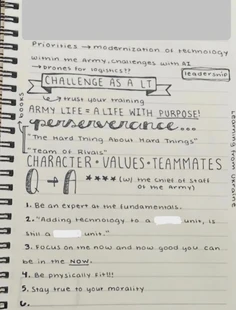 Priorities → modernization of technology
within the army, challenges with AI
→ drones for logistics??
leadership
CHALLENGE AS A LT
↳ trust your training
ARMY LIFE = A LIFE WITH PURPOSE!
perserverance...
BOOKS
"The Hard Thing About Hard Things"
"Team of Rivals"
CHARACTER + VALUES + TEAMMATES
Q → A **** (w/ the chief of staff
of the Army)
1. Be an expert at the fundamentals.
2. "Adding technology to a unit, is
still a unit."
3. Focus on the now and how good you can
be in the NOW.
4. Be physically fit!!!
5. Stay true to your morality
6.
Learning from Ukraine